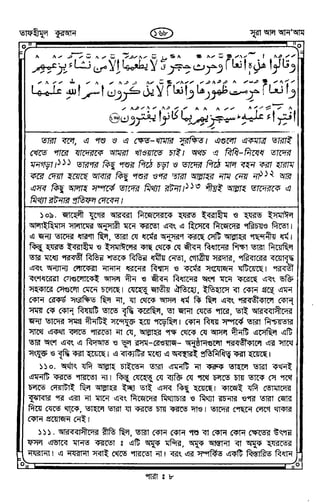 তাফহীমুল কুরআন
১৬৮
সূরা আল আন'আম
وَقَالُوا هٰذِهٖ اَنْعَامٌ وَّحَرْثٌ حِجْرٌ لَّا يَطْعَمُهَا اِلَّا مَنْ نَّشَآءُ بِزَعْمِهِمْ
وَاَنْعَامٌ حُرِّمَتْ ظُهُوْرُهَا وَاَنْعَامٌ لَّا يَذْكُرُوْنَ اسْمَ اللّٰهِ عَلَيْهَا
افْتِرَآءً عَلَيْهِ سَيَجْزِيْهِمْ بِمَا كَانُوْا يَفْتَرُوْنَ
তারা বলে, এ পশু ও এ ক্ষেত-খামার সুরক্ষিত। এগুলো একমাত্র তারাই
খেতে পারে যাদেরকে আমরা খাওয়াতে চাই। অথচ এ বিধি-নিষেধ তাদের
মনগড়া।১১১ তারপর কিছু পশুর পিঠে চড়া ও তাদের পিঠে মাল বহন করা হারাম
করে দেয়া হয়েছে আবার কিছু পশুর ওপর তারা আল্লাহর নাম নেয় না।১১২ আর
এসব কিছু আল্লাহ সম্পর্কে তাদের মিথ্যা রটনা।১১৩ শীঘ্রই আল্লাহ তাদেরকে এ
মিথ্যা রটনার প্রতিফল দেবেন।
১০৯. জাহেলী যুগের আরবরা নিজেদেরকে হযরত ইবরাহীম ও হযরত ইসমাঈল
আলাইহিমাস সালামের অনুসারী মনে করতো এবং এ হিসেবে নিজেদের পরিচয়ও দিতো।
এ জন্য তাদের ধারণা ছিল, তারা যে ধর্মের অনুসরণ করছে সেটি আল্লাহর পছন্দনীয় ধর্ম।
কিন্তু হযরত ইবরাহীম ও ইসমাঈলের কাছ থেকে যে জীবন বিধানের শিক্ষা তারা নিয়েছিল
তার মধ্যে পরবর্তী বিভিন্ন শতকে বিভিন্ন ধর্মীয় নেতা, গোত্রীয় সরদার, পরিবারের বয়োবৃদ্ধ
এবং অন্যান্য লোকেরা নানান ধরনের বিশ্বাস ও কর্মের সংযোজন ঘটিয়েছে। পরবর্তী
বংশধরেরা সেগুলোকেই আসল দীন ও জীবন বিধানের অংশ মনে করেছে এবং ভক্তি
সহকারে সেগুলো মেনে চলেছে। যেহেতু জাতীয় ঐতিহ্যে, ইতিহাসে বা কোন গ্রন্থে এমন
কোন রেকর্ড সংরক্ষিত ছিল না, যা থেকে আসল ধর্ম কি ছিল এবং পরবর্তীকালে কোন্
সময় কে কোন বিষয়টি তাতে বৃদ্ধি করেছিল, তা জানা যেতে পারে, তাই আরববাসীদের
জন্য তাদের সমগ্র দীনটিই সংশয়যুক্ত হয়ে পড়েছিল। কোন বিষয় সম্পর্কে তারা নিশ্চয়তার
সাথে একথা বলতে পারতো না যে, আল্লাহর পক্ষ থেকে যে আসল দীনটি এসেছিল এটি
তার অংশ এবং এ বিদআত ও ভুল রসম-রেওয়াজ- অনুষ্ঠানগুলো পরবর্তীকালে এর সাথে
সংযুক্ত ও বৃদ্ধি করা হয়েছে। এ বাক্যটির মধ্যে এ অবস্থারই প্রতিনিধিত্ব করা হয়েছে।
১১০. অর্থাৎ যদি আল্লাহ চাইতেন তারা এমনটি না করুক তাহলে তারা কখনই
এমনটি করতে পারতো না। কিন্তু যেহেতু যে ব্যক্তি যে পথে চলতে চায় তাকে সে পথে
চলতে দেয়াটাই ছিল আল্লাহর ইচ্ছা তাই এসব কিছু হয়েছে। কাজেই যদি তোমাদের
বুঝাবার পর এরা না মানে এবং নিজেদের মিথ্যাচার ও মিথ্যা রচনার ওপর তারা জোর
দিয়ে যেতে থাকে, তাহলে তারা যা করতে চায় করতে দাও। তাদের পেছনে লেগে থাকার
কোন প্রয়োজন নেই।
১১১. আরববাসীদের রীতি ছিল, তারা কোন কোন পশু বা কোন কোন ক্ষেতের উৎপন্ন
ফসল এভাবে মানত করতো : এটি অমুক মন্দির, অমুক আস্তানা বা অমুক হযরতের
নযরানা। এ নযরানা সবাই খেতে পারতো না। বরং এর সম্পর্কিত একটি বিস্তারিত বিধান
পারা : ৮